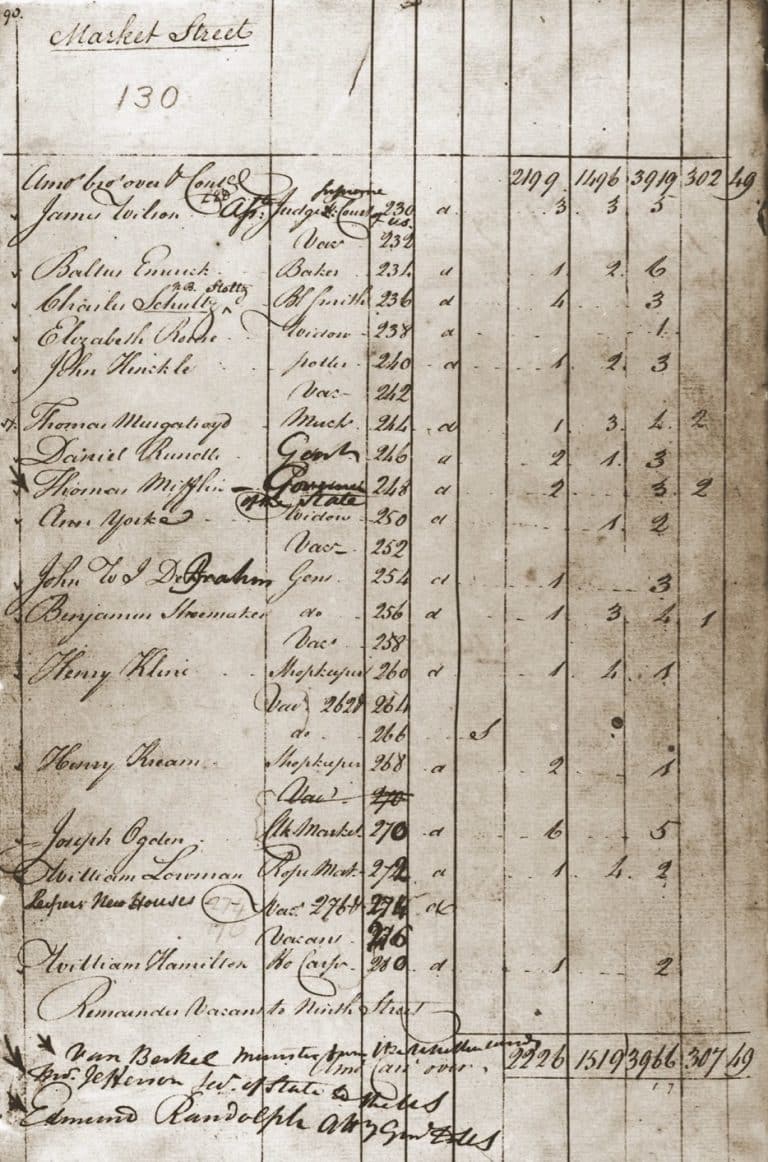 90.
Market Street
130
Amo.t bro.t over & Cont.d 2199 1496 3919 302 49
228 supreme
James Wilson Ass.te Judge Court 230 d 3 3 5
of U.S.
Vac.t 232
Baltus Emrick Baker 234 d 1 2 6
N.B. Stoltz
Charles Schultz Bl. Smith 236 d 4 3
Elizabeth Rowe Widow 238 d 1
John Hinckle potter 240 d 1 2 3
Vac.t 242
Thomas Murgatroyd Merch.t 244 d 1 3 4 2
Daniel Rundle Gent.n 246 d 2 1 3
Thomas Mifflin — Governor 248 d 2 3 2
of the State
Ann Yorke Widow 250 d 1 2
Vac.t 252
John W I DeBrahm Gent. 254 d 1 3
Benjamin Shoemaker do 256 d 1 3 4 1
Vac.t 258
Henry Kline Shopkeeper 260 d 1 4 1
Vac.t 262 & 264
do 266 S
Henry Kream Shopkeeper 268 d 2 1
Vac.t 270
Joseph Ogden Clk Market 270 d 6 5
William Lowman Rope Mak.r 272 d 1 4 2
Leepers New Houses 274 Vac.t 276 & 274 d
Vacant 276
William Hamilton Ho Carp.r 280 d 1 2
Remainder Vacant to Ninth Street
Van Berkel Minister from the Netherlands
Amo.t Car.d over 2226 1519 3966 307 49
Jefferson Sec.y of State to the US
Edmund Randolph Att.y Gen.l US